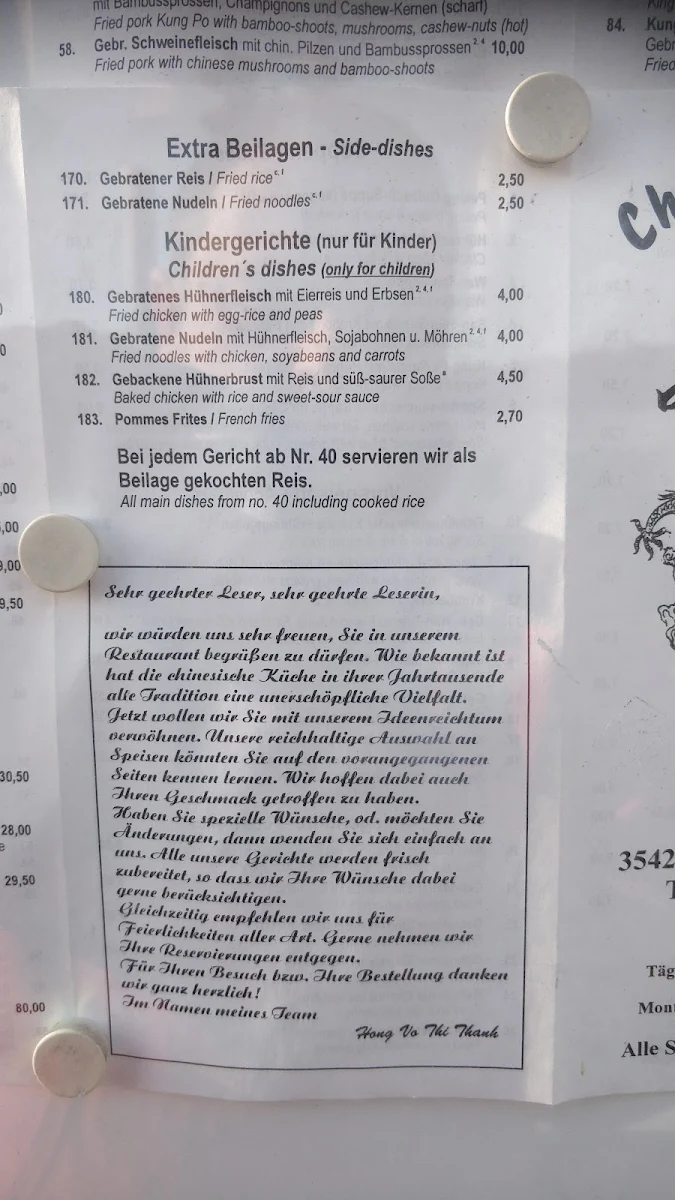 mit Bambussprossen, Champignons und Cashew-Kernen (scharf)
Fried pork Kung Po with bamboo-shoots, mushrooms, cashew-nuts (hot)
58. Gebr. Schweinefleisch mit chin. Pilzen und Bambussprossen 2,4 10,00
Fried pork with chinese mushrooms and bamboo-shoots
Extra Beilagen - Side-dishes
170. Gebratener Reis / Fried rice c,1 2,50
171. Gebratene Nudeln / Fried noodles c,1 2,50
Kindergerichte (nur für Kinder)
Children´s dishes (only for children)
180. Gebratenes Hühnerfleisch mit Eierreis und Erbsen 2,4,1 4,00
Fried chicken with egg-rice and peas
181. Gebratene Nudeln mit Hühnerfleisch, Sojabohnen u. Möhren 2,4,1 4,00
Fried noodles with chicken, soyabeans and carrots
182. Gebackene Hühnerbrust mit Reis und süß-saurer Soße 4,50
Baked chicken with rice and sweet-sour sauce
183. Pommes Frites / French fries 2,70
Bei jedem Gericht ab Nr. 40 servieren wir als
Beilage gekochten Reis.
All main dishes from no. 40 including cooked rice
Sehr geehrter Leser, sehr geehrte Leserin,
wir würden uns sehr freuen, Sie in unserem
Restaurant begrüßen zu dürfen. Wie bekannt ist
hat die chinesische Küche in ihrer Jahrtausende
alte Tradition eine unerschöpfliche Vielfalt.
Jetzt wollen wir Sie mit unserem Ideenreichtum
verwöhnen. Unsere reichhaltige Auswahl an
Speisen könnten Sie auf den vorangegangenen
Seiten kennen lernen. Wir hoffen dabei auch
Ihren Geschmack getroffen zu haben.
Haben Sie spezielle Wünsche, od. möchten Sie
Änderungen, dann wenden Sie sich einfach an
uns. Alle unsere Gerichte werden frisch
zubereitet, so dass wir Ihre Wünsche dabei
gerne berücksichtigen.
Gleichzeitig empfehlen wir uns für
Feierlichkeiten aller Art. Gerne nehmen wir
Ihre Reservierungen entgegen.
Für Ihren Besuch bzw. Ihre Bestellung danken
wir ganz herzlich!
Im Namen meines Team
Hong Vo Thi Thanh
,00
,00
9,00
9,50
30,50
28,00
29,50
80,00
84. Kung
Gebr
Fried
Ch
3542
T
Täg
Mont
Alle S